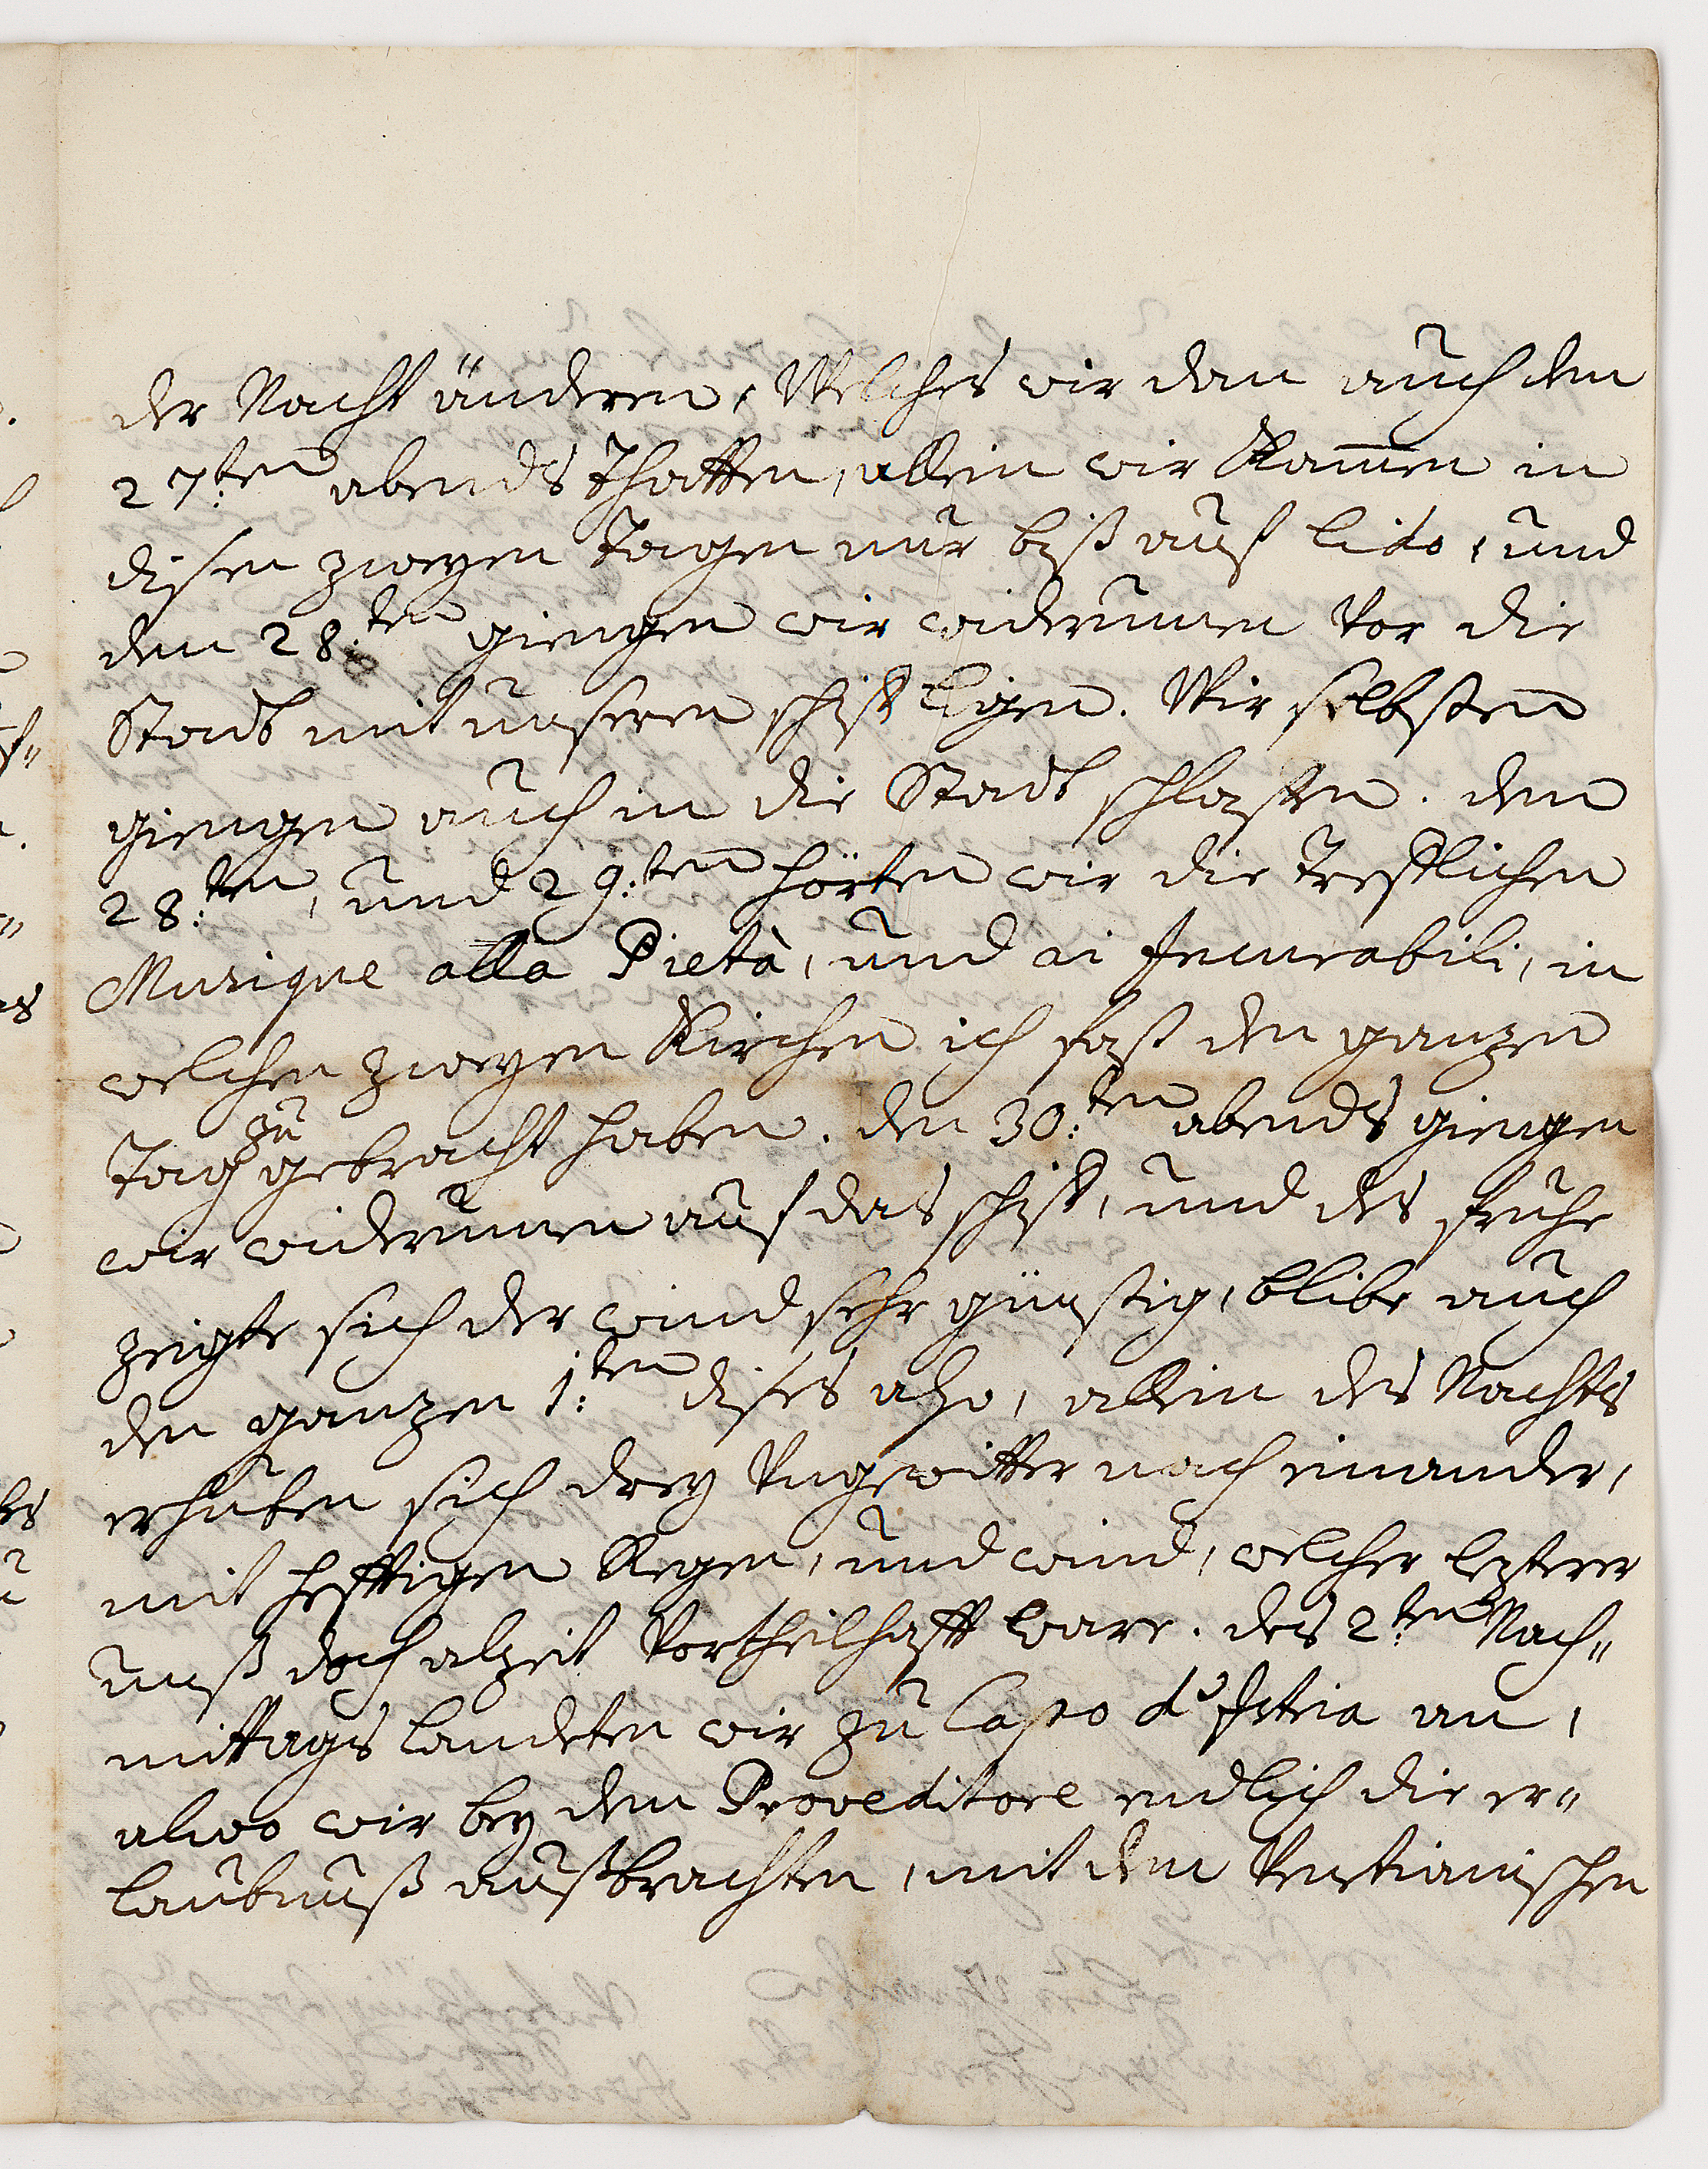 der Nacht änderen, Welches wir dan auch den
27:ten abends thatten, allein wir kamen in
disen zweyen tagen nur biß auf lido, und
den 28:ten giengen wir widerumen vor die
Stadt mit unseren schiff ligen. Wir selbsten
giengen auch in die Stadt schlaffen. den
28:ten, und 29:ten hörten wir die trefflichen
Musique alla Pietà, und ai Incurabili, in
welchen zweyen Kirchen ich fast den ganzen
tag zu gebracht haben. den 30:ten abends giengen
wir widerumen auf das schiff, und des frühe
zeigte sich der wind sehr günstig, blibe auch
den ganzen 1:ten dises also, allein des Nachts
erhuben sich drey Ungewitter nach einander,
mit hefftigen Regen, und wind, welcher lezterer
unß doch alzeit vortheilhafft ware. des 2:ten Nach"
mittags landeten wir zu Capo d'Istria an,
alwo wir bey dem Proveditore endlich die er"
laubnuß außbrachten, mit dem Venetianischen